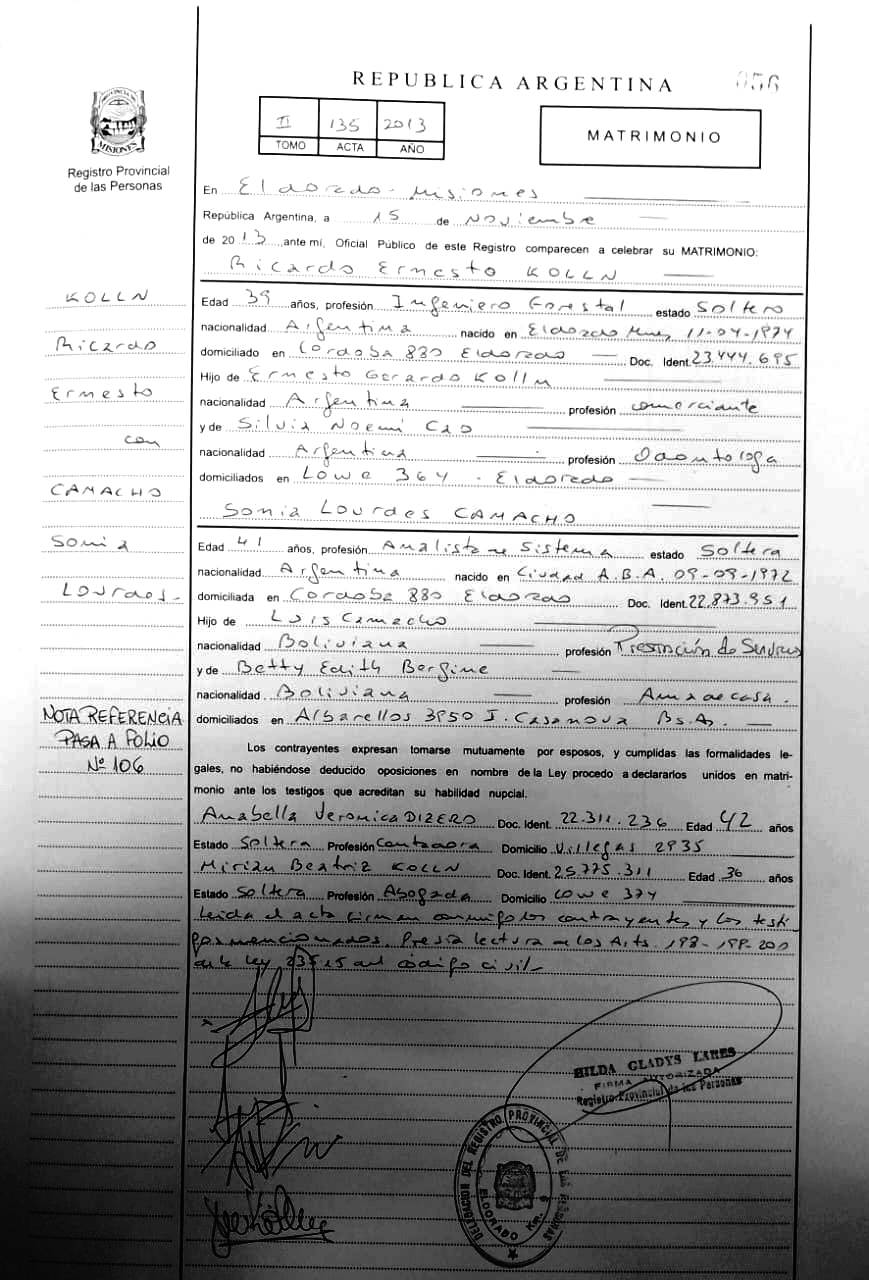 REPUBLICA ARGENTINA
056
PROVINCIA DE
MISIONES
Registro Provincial
de las Personas
II 135 2013
TOMO ACTA AÑO
MATRIMONIO
En Eldorado - Misiones
República Argentina, a 15 de Noviembre
de 2013 ante mí, Oficial Público de este Registro comparecen a celebrar su MATRIMONIO:
Ricardo Ernesto KOLLN
KOLLN
Ricardo
Ernesto
con
CAMACHO
Sonia
Lourdes.-
NOTA REFERENCIA
PASA A FOLIO
Nº 106
Edad 39 años, profesión Ingeniero Forestal estado Soltero
nacionalidad Argentina nacido en Eldorado Mnes 11-04-1974
domiciliado en Cordoba 880 Eldorado Doc. Ident. 23.444.695
Hijo de Ernesto Gerardo Kolln
nacionalidad Argentina profesión comerciante
y de Silvia Noemí Cao
nacionalidad Argentina profesión Odontologa
domiciliados en Lowe 364 - Eldorado
Sonia Lourdes CAMACHO
Edad 41 años, profesión Analista de Sistema estado Soltera
nacionalidad Argentina nacido en Ciudad A.B.A. 09-09-1972
domiciliada en Cordoba 880 Eldorado Doc. Ident. 22.873.951
Hijo de Luis Camacho
nacionalidad Boliviana profesión Prestación de Servicios
y de Betty Edith Bergine
nacionalidad Boliviana profesión Ama de casa.
domiciliados en Albarellos 3950 I. Casanova Bs.As.
Los contrayentes expresan tomarse mutuamente por esposos, y cumplidas las formalidades le-
gales, no habiéndose deducido oposiciones en nombre de la Ley procedo a declararlos unidos en matri-
monio ante los testigos que acreditan su habilidad nupcial.
Anabella Veronica DIZERO Doc. Ident. 22.311.236 Edad 42 años
Estado Soltera Profesión Contadora Domicilio Villegas 2935
Mirian Beatriz KOLLN Doc. Ident. 25.775.311 Edad 36 años
Estado Soltera Profesión Abogada Domicilio Lowe 374
Leida el acta firman conmigo los contrayentes y los testi
gos mencionados. Previa lectura de los Arts. 198-199-200
de la ley 23515 del código civil
HILDA GLADYS LARES
FIRMA AUTORIZADA
Registro Provincial de las Personas
DELEGACION DEL REGISTRO PROVINCIAL DE LAS PERSONAS
ELDORADO Km. 9